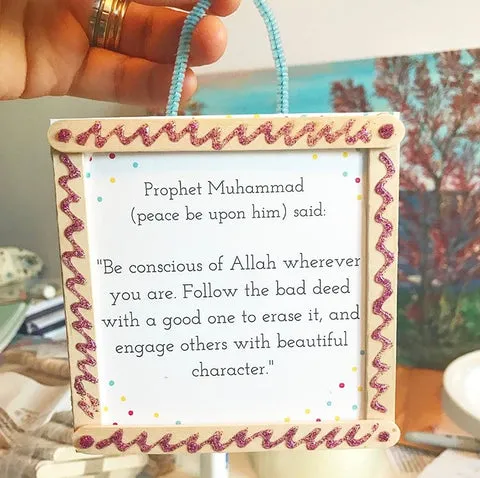 Prophet Muhammad
(peace be upon him) said:
"Be conscious of Allah wherever
you are. Follow the bad deed
with a good one to erase it, and
engage others with beautiful
character."